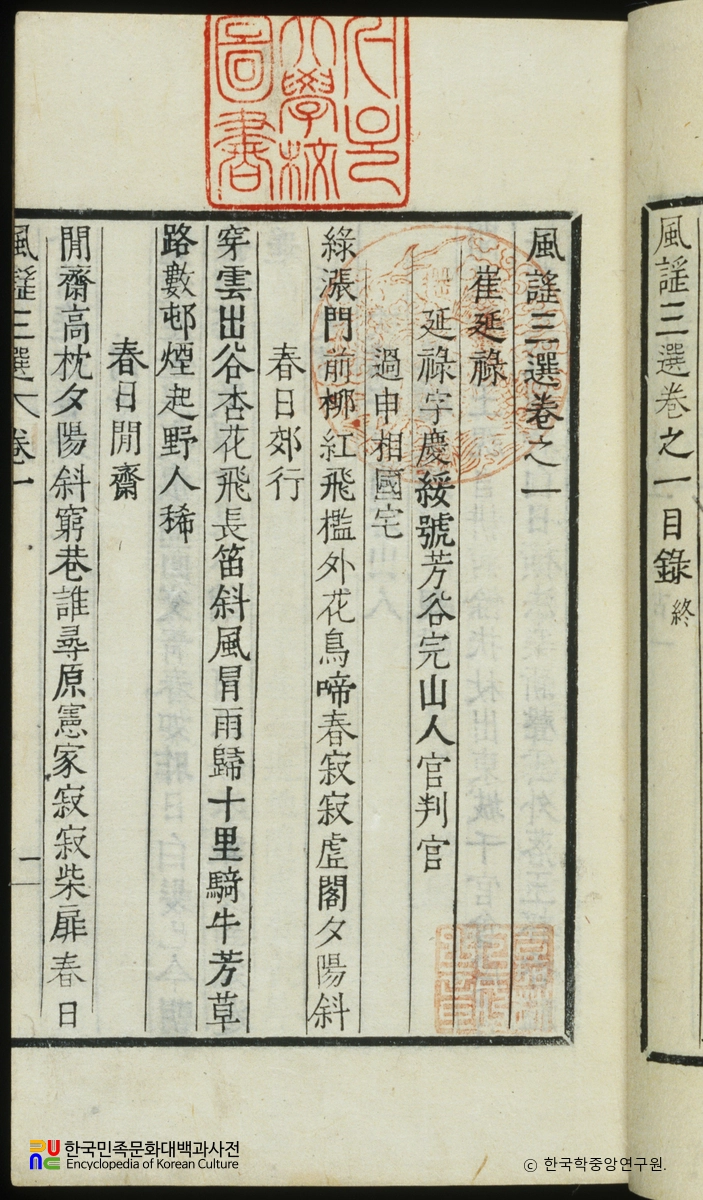 風謠三選卷之一目錄 終
風謠三選卷之一
崔延祿
延祿字慶綏號芳谷完山人官判官
過申相國宅
綠漲門前柳紅飛檻外花鳥啼春寂寂虛閣夕陽斜
春日郊行
穿雲出谷杏花飛長笛斜風冒雨歸十里騎牛芳草
路數邨煙起野人稀
春日閒齋
閒齋高枕夕陽斜窮巷誰尋原憲家寂寂柴扉春日
風謠三選 卷一
一
大學校
圖書
한국민족문화대백과사전
Encyclopedia of Korean Culture
© 한국학중앙연구원.